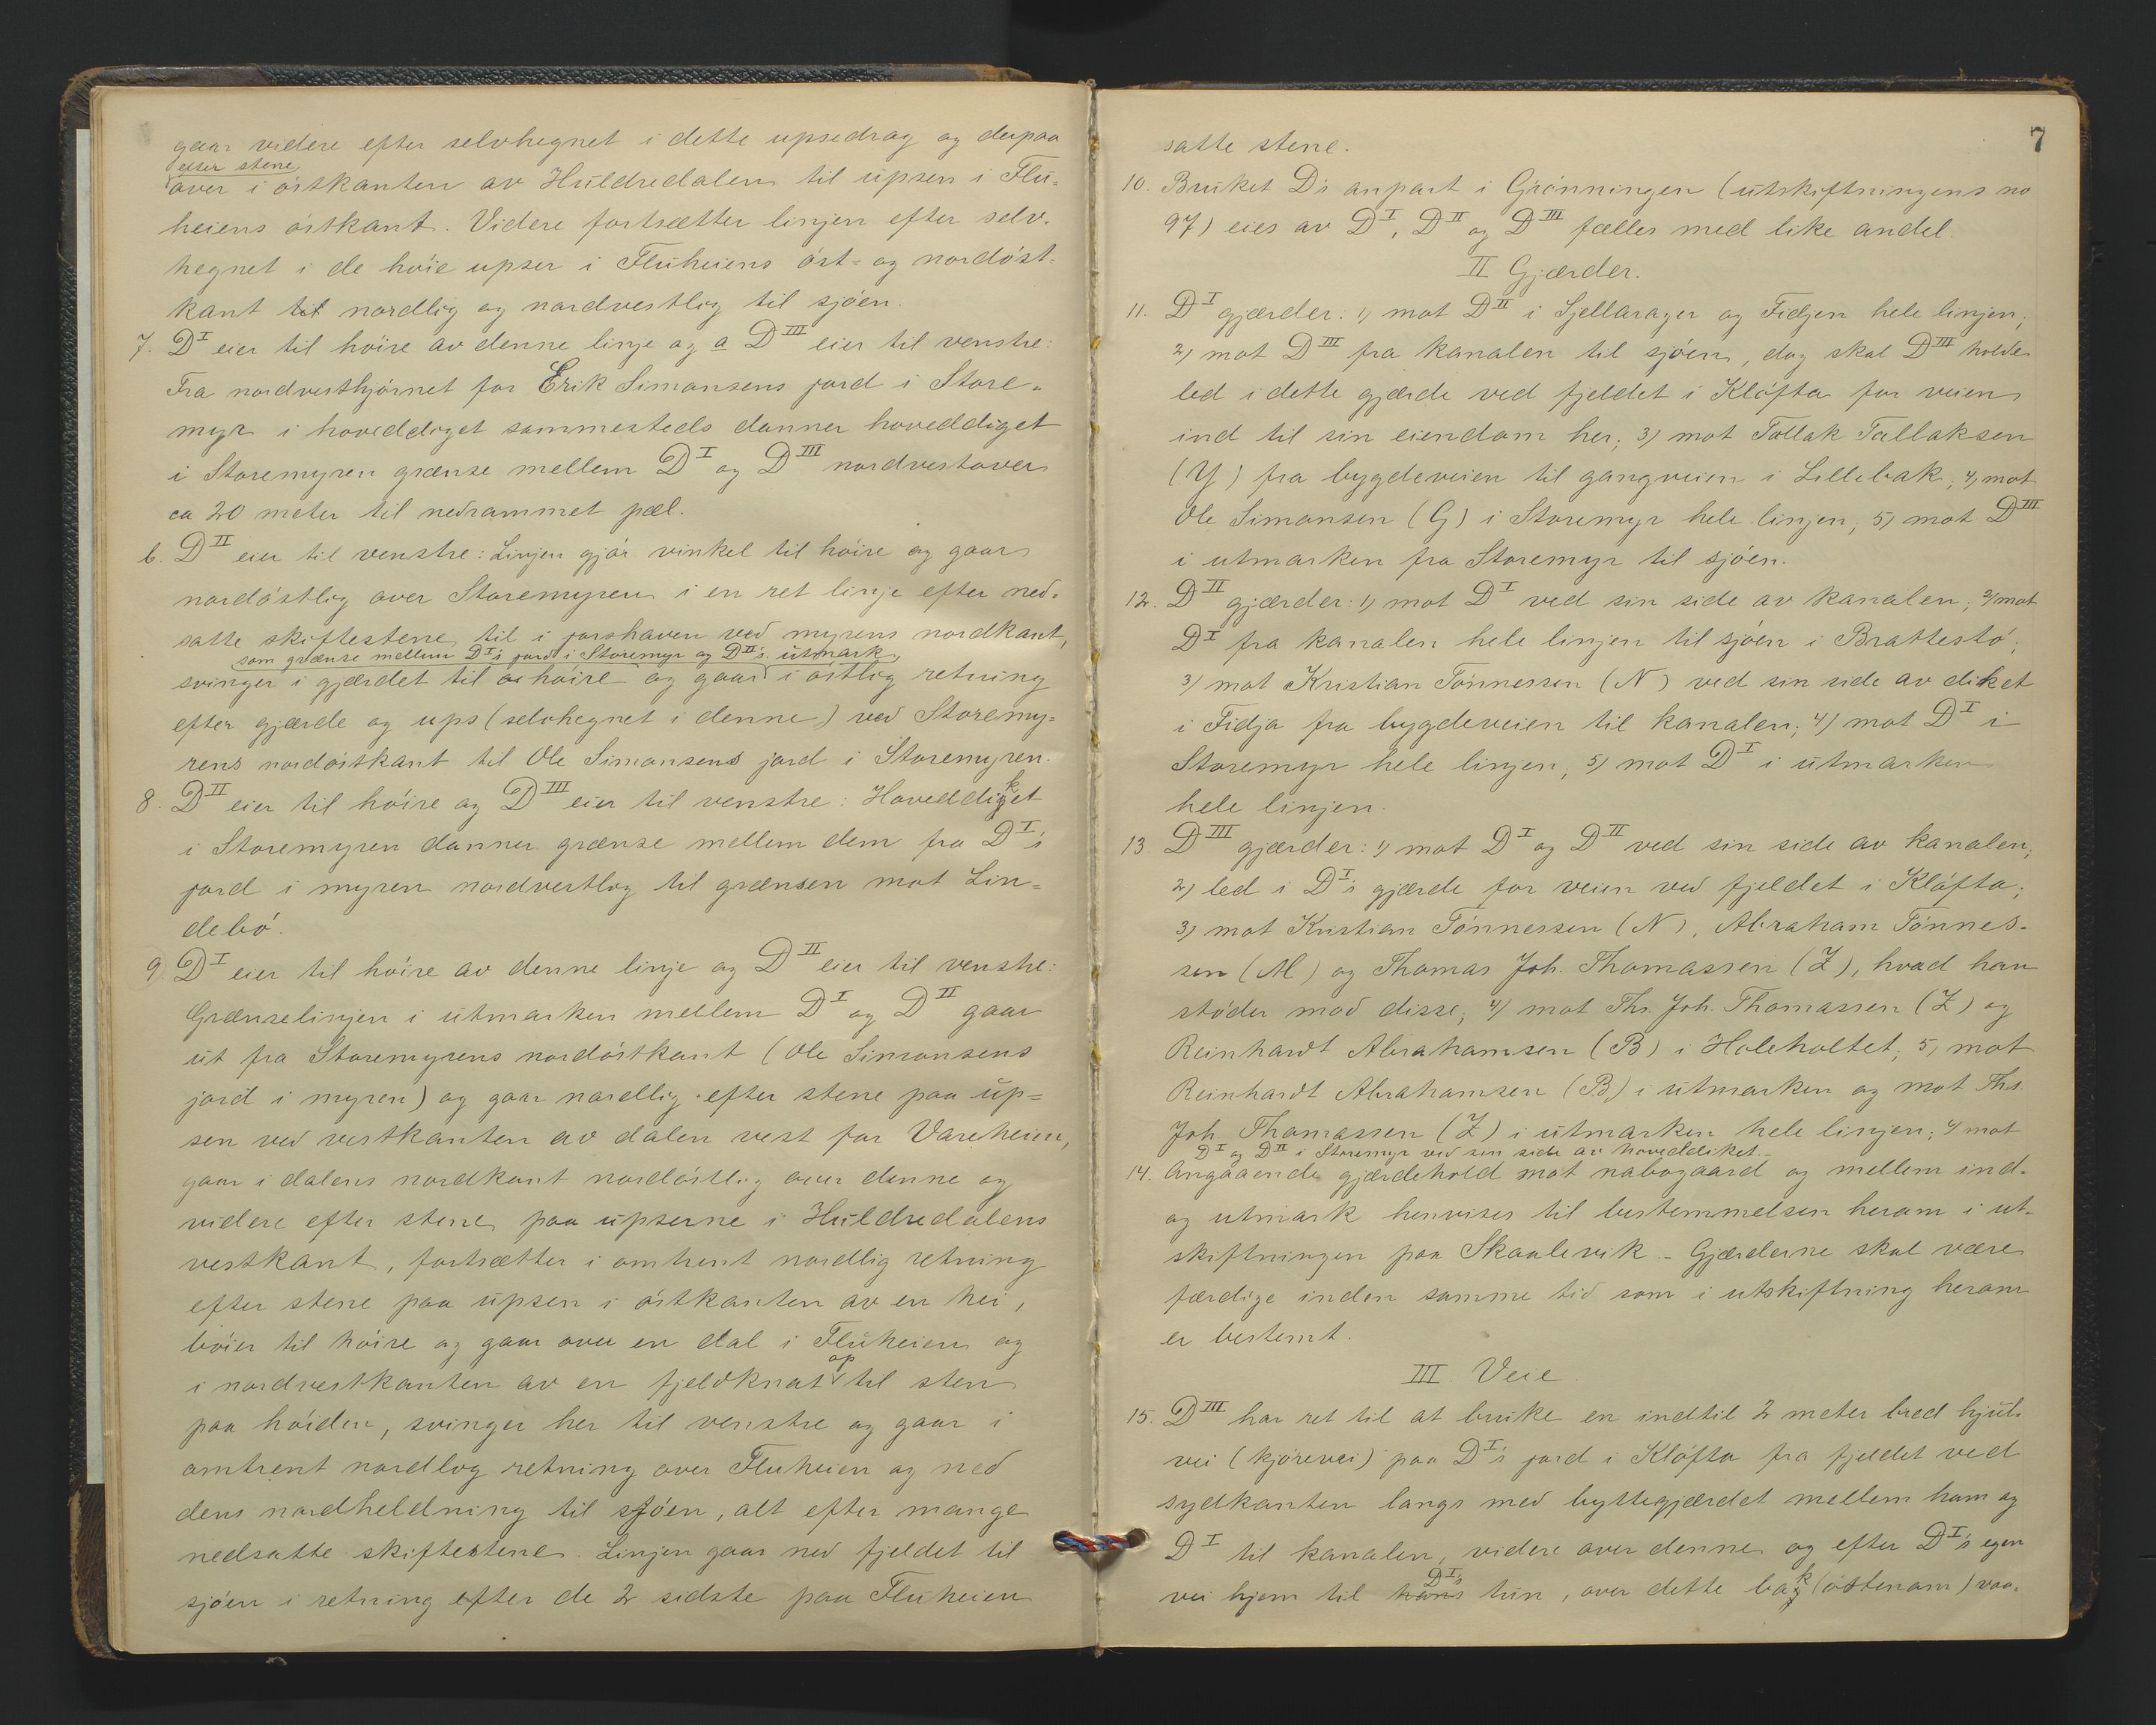 gaar videre efter selvhegnet i dette upsedrag og derpaa
efter stene
over i östkanten av Huldredalen til upsen i Flu-
heiens östkant. Videre fortsætter linjen efter selv-
hegnet i de höie upser i Fluheiens öst- og nordöst-
kant til nordlig og nordvestlig til sjöen.
7. D I eier til höire av denne linje og a D III eier til venstre:
Fra nordvesthjörnet for Erik Simonsens jord i Store-
myr i hoveddiget sammesteds danner hoveddiget
i Storemyren grænse mellem D I og D III nordvestover
ca 20 meter til nedrammet pæl.
b. D II eier til venstre: Linjen gjör vinkel til höire og gaar
nordöstlig over Storemyren i en ret linje efter ned-
satte skiftestene til i jorshaven ved myrens nordkant,
som grænse mellem D I's jord i Storemyr og D II's utmark
svinger i gjærdet til höire og gaar i östlig retning
efter gjærde og ups (selvhegnet i denne) ved Storemy-
rens nordöstkant til Ole Simonsens jord i Storemyren.
8. D II eier til höire og D III eier til venstre: Hoveddiket
i Storemyren danner grænse mellem dem fra D I's
jord i myren nordvestlig til grænsen mot Lin-
debö.
9. D I eier til höire av denne linje og D II eier til venstre:
Grænselinjen i utmarken mellem D I og D II gaar
ut fra Storemyrens nordöstkant (Ole Simonsens
jord i myren) og gaar nordlig efter stene paa up-
sen ved vestkanten av dalen vest for Vareheien,
gaar i dalens nordkant nordöstlig over denne og
videre efter stene paa upserne i Huldredalens
vestkant, fortsætter i omtrent nordlig retning
efter stene paa upsen i östkanten av en hei,
böier til höire og gaar over en dal i Fluheien og
i nordvestkanten av en fjeldknat op til sten
paa höiden, svinger her til venstre og gaar i
omtrent nordlog retning over Fluheien og ned
dens nordheldning til sjöen, alt efter mange
nedsatte skiftestene. Linjen gaar ned fjeldet til
sjöen i retning efter de 2 sidste paa Fluheien
7
satte stene.
10. Bruket D's anpart i Grönningen (utskiftningens no
97) eies av D I, D II og D III fælles med like andel.
II Gjærder.
11. D I gjærder: 1) mot D II i Sjellarager og Fidjen hele linjen;
2) mot D III fra kanalen til sjöen, dog skal D III holde
led i dette gjærde ved fjeldet i Klöfta for veien
ind til sin eiendom her; 3) mot Tollak Tallaksen
(Y) fra bygdeveien til gangveien i Lillebak; 4) mot
Ole Simonsen (G) i Storemyr hele linjen; 5) mot D III
i utmarken fra Storemyr til sjöen.
12. D II gjærder: 1) mot D I ved sin side av kanalen; 2) mot
D I fra kanalen hele linjen til sjöen i Brattestö;
3) mot Kristian Tönnessen (N) ved sin side av diket
i Fidja fra bygdeveien til kanalen; 4) mot D I i
Storemyr hele linjen; 5) mot D I i utmarken
hele linjen.
13 D III gjærder: 1) mot D I og D II ved sin side av kanalen;
2) led i D I's gjærde for veien ved fjeldet i Klöfta;
3) mot Kristian Tönnessen (N), Abraham Tönnes-
sen (M) og Thomas Joh. Thomassen (Z), hvad han
stöder mod disse; 4) mot Ths. Joh. Thomassen (Z) og
Reinhardt Abrahamsen (B) i Holeholtet; 5) mot
Reinhardt Abrahamsen (B) i utmarken og mot Ths.
Joh. Thomassen (Z) i utmarken hele linjen; 4) mot
D I og D II i Storemyr ved sin side av hoveddiket.
14. Angaaende gjærdehold mot nabogaard og mellem ind-
og utmark henvises til bestemmelsen herom i ut-
skiftningen paa Skaalevik. - Gjærderne skal være
færdige inden samme tid som i utskiftning herom
er bestemt.
III. Veie.
15. D III har ret til at bruke en indtil 2 meter bred hjul-
vei (kjörevei) paa D I's jord i Klöfta fra fjeldet ved
sydkanten langs med byttegjærdet mellem ham og
D I til kanalen, videre over denne og efter D I's egen
D I's
vei hjem til hans tun, over dette bak (östenom) vaa-